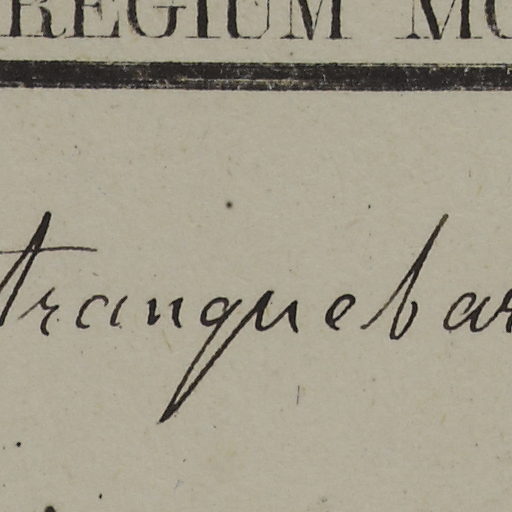 REGIUM MU
tranquebar